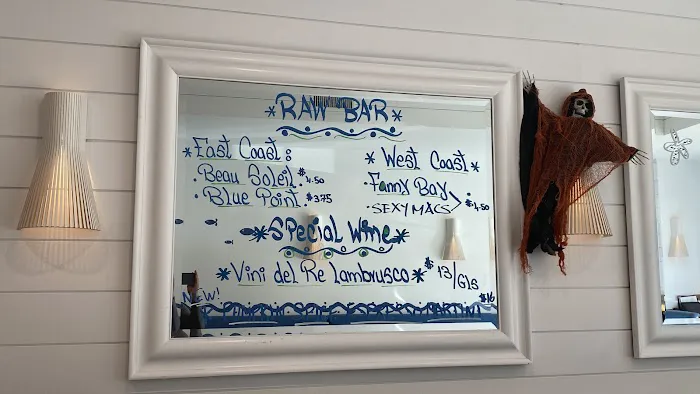 *RAW BAR*
*East Coast:
·Beau Soleil. $4.50
·Blue Point. $3.75
*West Coast*
·Fanny Bay
·SEXY MACS > $4.50
*Special Wine*
*Vini del Re Lambrusco* $13/Gls
NEW! $16
MARTINI